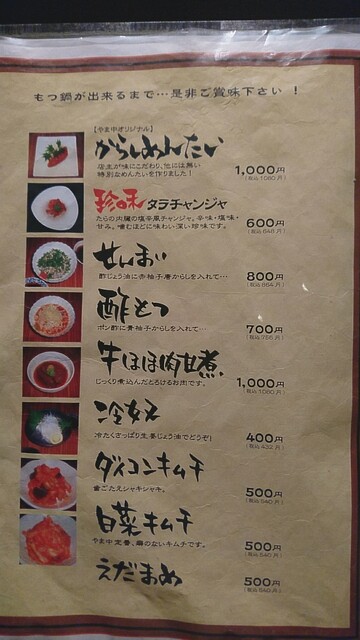 もつ鍋が出来るまで…是非ご賞味下さい！
【やま中オリジナル】
からしめんたい
店主が味にこだわり、他には無い
特別なめんたいを作りました！
1,000円
(税込1080円)
珍味 タラチャンジャ
たらの内臓の塩辛風チャンジャ。辛味・塩味・
甘み。噛むほどに味わい深い珍味です。
600円
(税込648円)
せんまい
酢じょう油に赤柚子唐からしを入れて…
800円
(税込864円)
酢もつ
ポン酢に青柚子からしを入れて…
700円
(税込756円)
牛ほほ肉甘煮
じっくり煮込んだとろけるお肉です。
1,000円
(税込1080円)
冷奴
冷たくさっぱり生姜じょう油でどうぞ！
400円
(税込432円)
ダイコンキムチ
歯ごたえシャキシャキ。
500円
(税込540円)
白菜キムチ
やま中定番、癖のないキムチです。
500円
(税込540円)
えだまめ
500円
(税込540円)